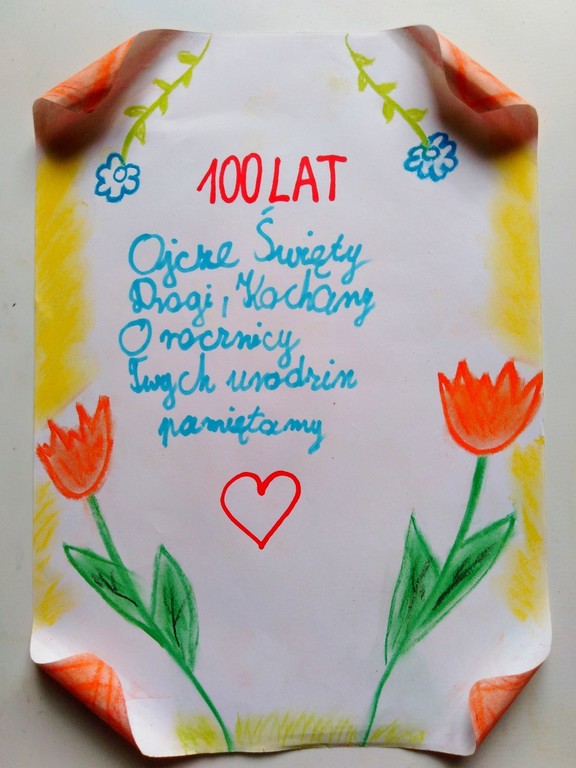 100 LAT
Ojcze Święty
Drogi, Kochany
O rocznicy
Twych urodzin
pamiętamy